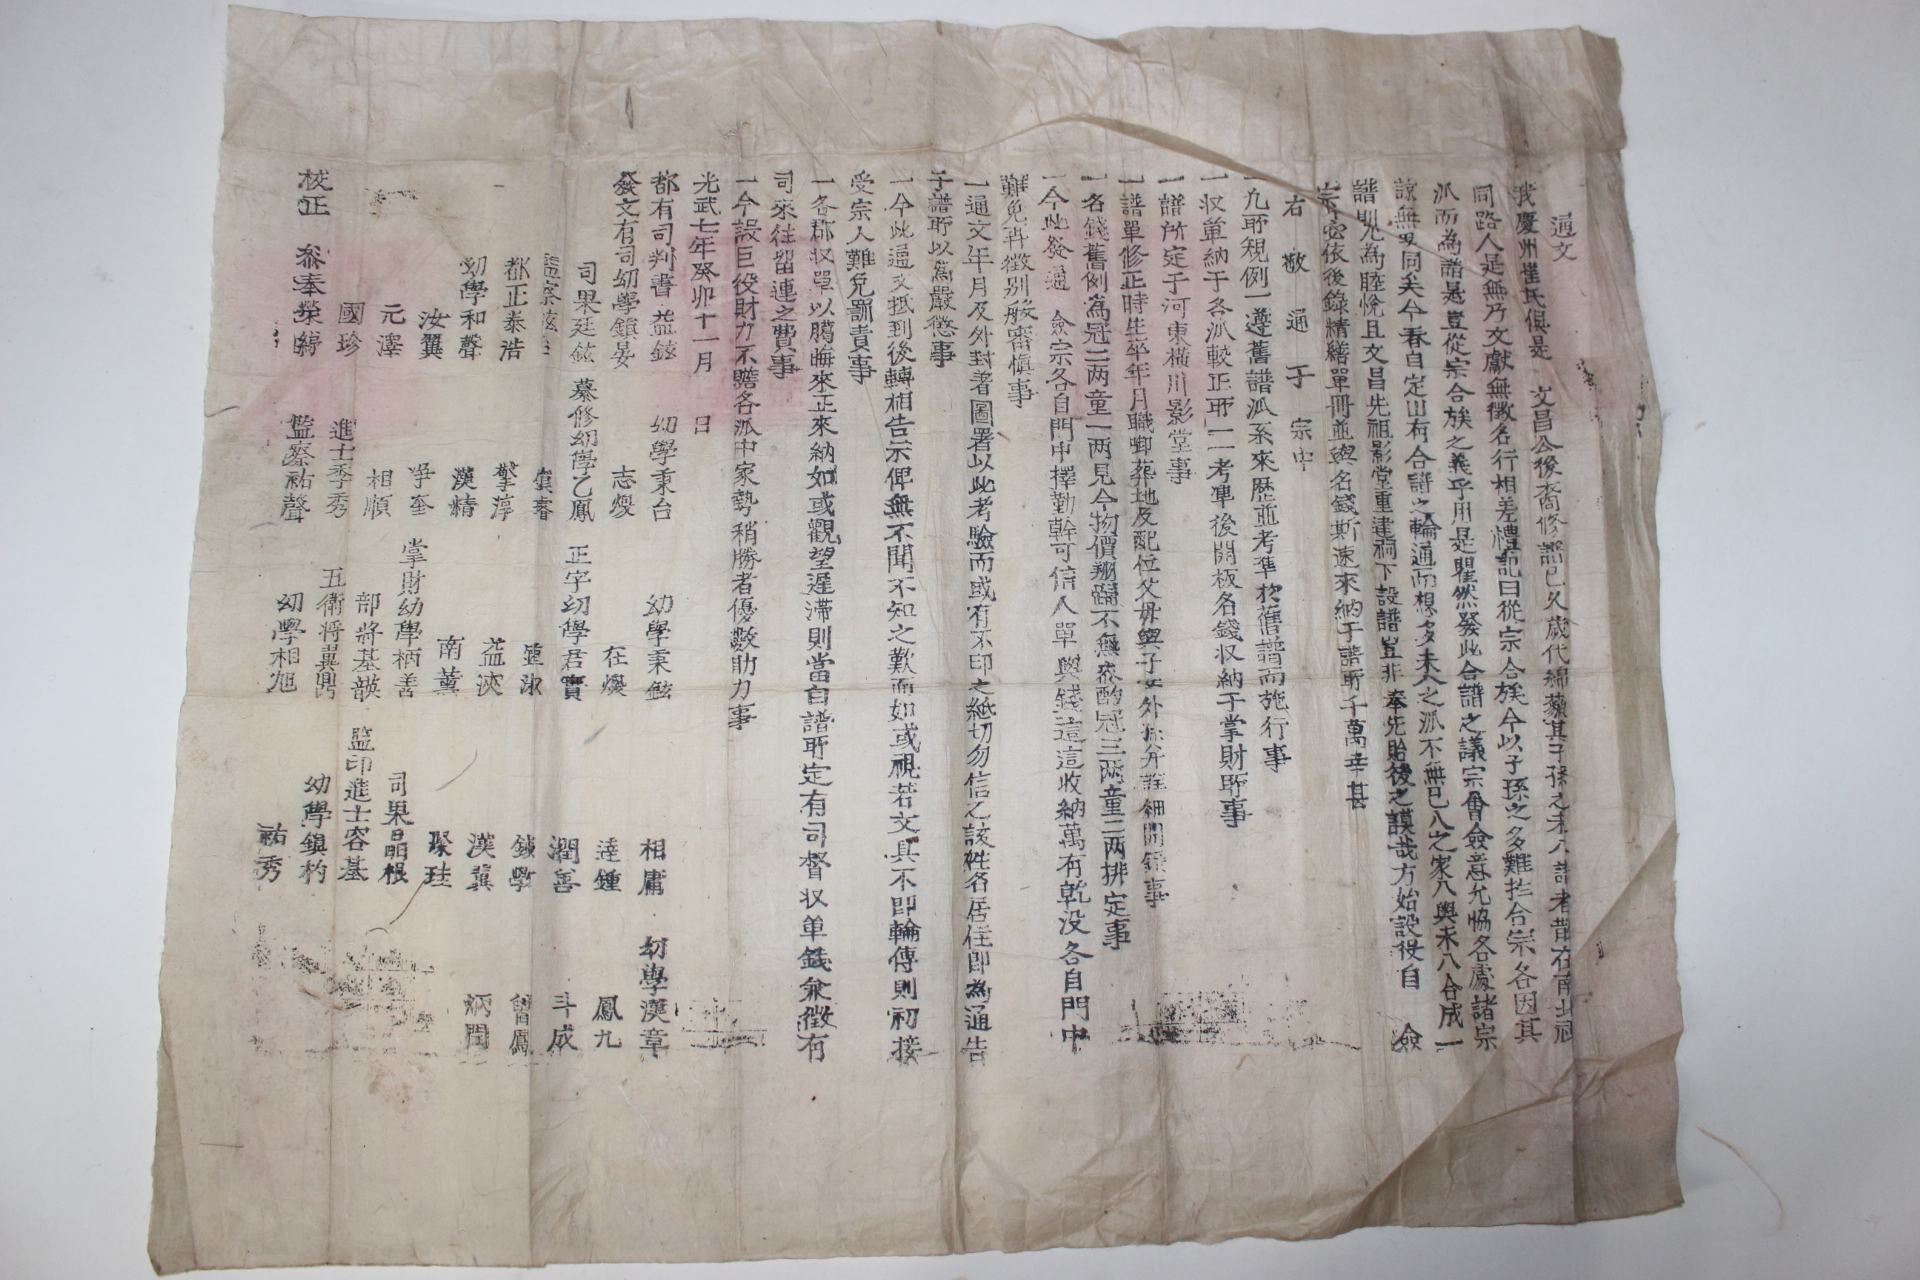 通文
我慶州崔氏俱是 文昌公後裔修譜已久歲代綿藐其子孫之未入譜者散在南北視
同路人是無乃文獻無徵名行相差禮記曰從宗合族今以子孫之多難於合宗各因其
派而為譜是豈從宗合族之義乎用是瞿然發此合譜之議宗會僉意允協各處諸宗
諒無異同矣今春自定山有合譜之輪通而想多未入之派不無已入之家入與未入合成一
譜則尤為睦悅且文昌先祖影堂重建祠下設譜豈非奉先貽後之謨哉方始設役自 僉
宗依後錄精繕單冊並與名錢斯速來納于譜所千萬幸甚
右敬通于 宗中
一凡所規例一遵舊譜派系來歷並考準於舊譜而施行事
一收單納于各派較正所一一考準後開板名錢収納于掌財所事
一譜所定于河東橫川影堂事
一譜單修正時生卒年月職啣葬地及配位父母與子女外孫並詳細開錄事
一名錢舊例為冠二兩童一兩見今物價翔騰不無參酌冠三兩童二兩排定事
一今此發通 僉宗各自門中擇勤幹可信人單與錢這這收納萬有乾没各自門中
難免再徵別般審愼事
一通文年月及外封著圖署以此考驗而或有不印之紙切勿信之該姓名居住即為通告
于譜所以為嚴懲事
一今此通文抵到後轉相告示俾無不聞不知之歎而如或視若文具不即輪傳則初接
受宗人難免罰責事
一各郡収單以臘晦來正來納如或觀望遲滯則當自譜所定有司督収單錢兼徵有
司來往留連之費事
一今設巨役財力不贍各派中家勢稍勝者優數助力事
光武七年癸卯十一月 日
都有司判書益鉉 幼學秉台 幼學秉鉉 相庸 幼學漢章
發文有司幼學鎭晏 志燮 在燮 達鍾 鳳九
司果廷鉉 纂修幼學乙鳳 正字幼學君實 潤善 斗成
監察 鉉
都正泰浩 擎淳 益浹 漢冀 炳閏
幼學和聲 漢精 南薰 琢珪
汝翼 掌財幼學柄善 司果昌根
元澤 相順 部將基韺 監印進士容基
國珍 進士季秀 五衛將翼 幼學鎭杓
校正 參奉榮鎬 監察祐聲 幼學相旭 祐秀